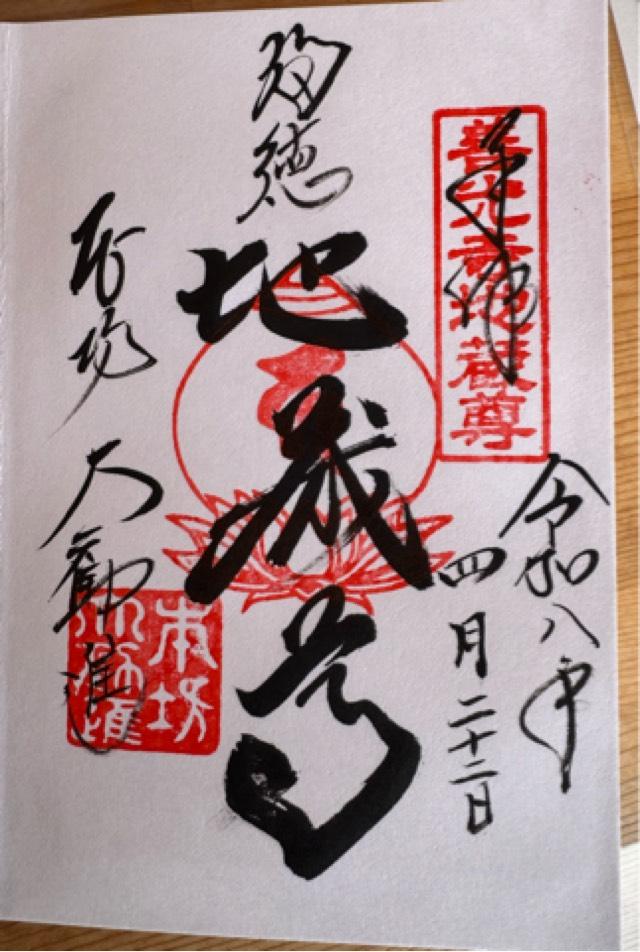 奉拝
善光寺地蔵尊
令和八年
四月二十二日
福徳
地蔵尊
本坊 大勧進
本坊
大勧進